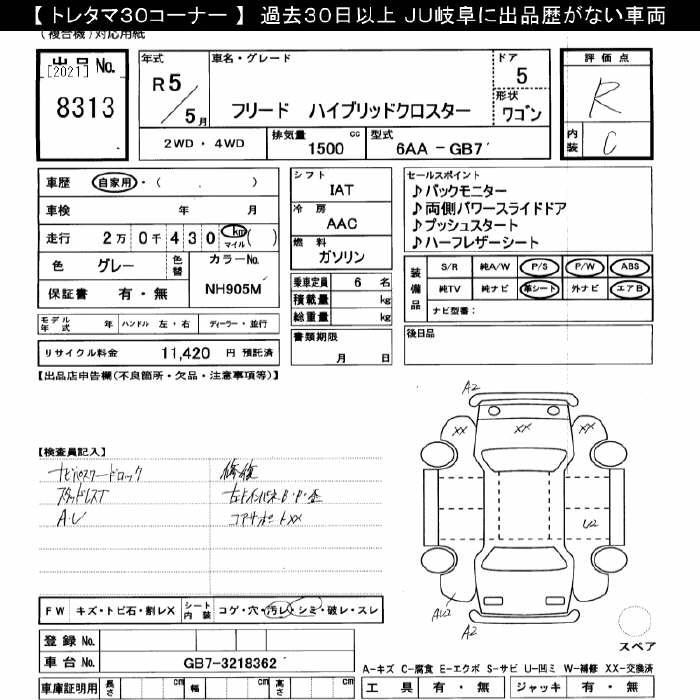 【 トレタマ30コーナー 】 過去30日以上 JU岐阜に出品歴がない車両
(複合機)対応用紙
出品 No.
[2021]
8313
年式
R5/5月
車名・グレード
フリード ハイブリッドクロスター
ドア
5
形状
ワゴン
2WD・4WD
排気量
1500 cc
型式
6AA - GB7
評価点
R
内装
C
車歴 自家用・( )
車検 年 月
走行 2万0千430 km マイル ( )
色 グレー 色替
カラーNo.
NH905M
保証書 有・無
シフト
IAT
冷房
AAC
燃料
ガソリン
乗車定員 6 名
積載量 kg
総重量 kg
セールスポイント
♪バックモニター
♪両側パワースライドドア
♪プッシュスタート
♪ハーフレザーシート
装備品
S/R 純A/W P/S P/W ABS
純TV 純ナビ 革シート 外ナビ エアB
ナビ型番:
モデル年式 年 ハンドル 左・右 ディーラー・並行
リサイクル料金 11,420 円 預託済
書類期限
月 日
後日品
【出品店申告欄(不良箇所・欠品・注意事項等)】
【検査員記入】
ナビパスワードロック
スタッドレスT
A・U
修復
コアサポートXX
A2
XX XX XX
U2
A2
FW キズ・トビ石・割レX
シート内装 コゲ・穴・汚レ・シミ・破レ・スレ
登録 No.
車台 No. GB7-3218362
車庫証明用 長さ cm 幅 cm 高さ cm
スペア
A-キズ C-腐食 E-エクボ S-サビ U-凹ミ W-補修 XX-交換済
工具 有・無 ジャッキ 有・無